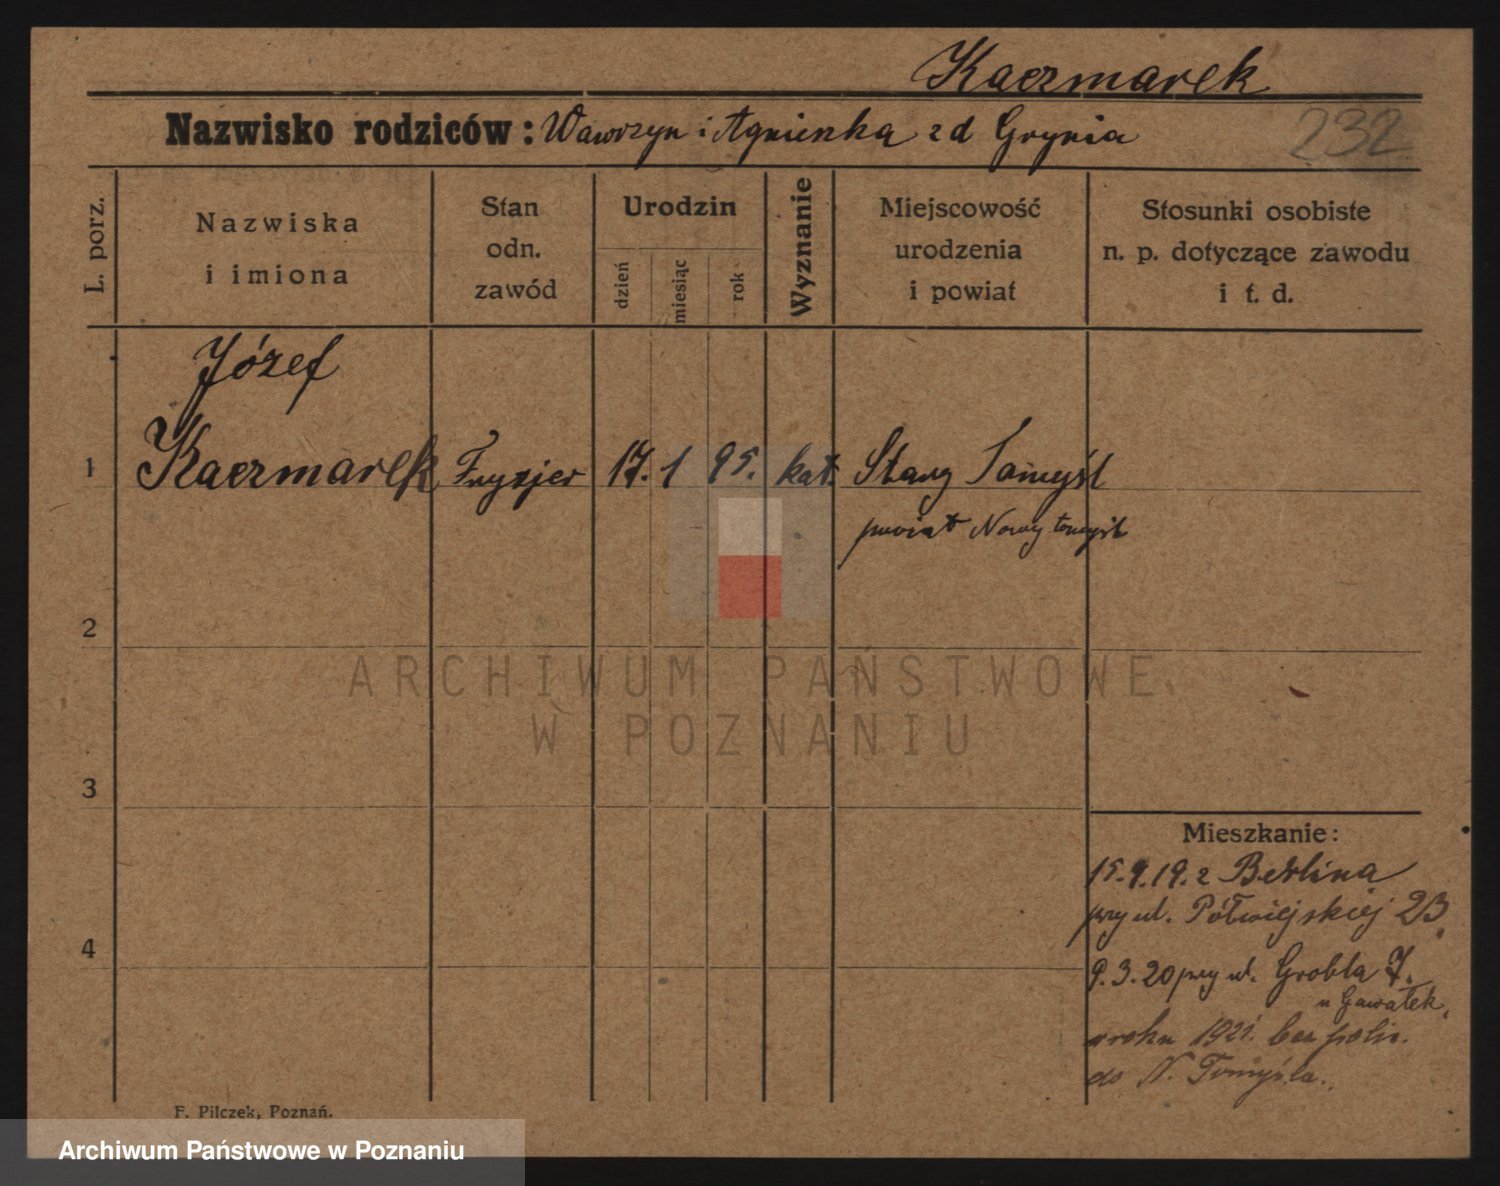 Kaczmarek
Nazwisko rodziców: Wawrzyn i Agnieszka z d Grynia
232
L. porz.
Nazwiska
i imiona
Stan
odn.
zawód
Urodzin
dzień
miesiąc
rok
Wyznanie
Miejscowość
urodzenia
i powiat
Stosunki osobiste
n. p. dotyczące zawodu
i t. d.
Józef
1 Kaczmarek Fryzjer 17. 1 95. kat. Stary Tomyśl
powiat Nowy tomyśl
2
ARCHIWUM PAŃSTWOWE
W POZNANIU
3
Mieszkanie:
15.9.19. z Berlina
przy ul. Półwiejskiej 23.
4
9.3.20 przy ul. Grobla 7.
u Gawałek.
w roku 1921. bez polic.
do N. Tomyśla.
F. Pilczek, Poznań.
Archiwum Państwowe w Poznaniu